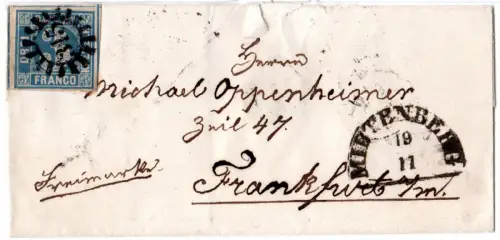 FRANCO
Herrn
Michael Oppenheimer
Zeil 47.
MILTENBERG
19
11
Freimarke.
Frankfurt a/m.